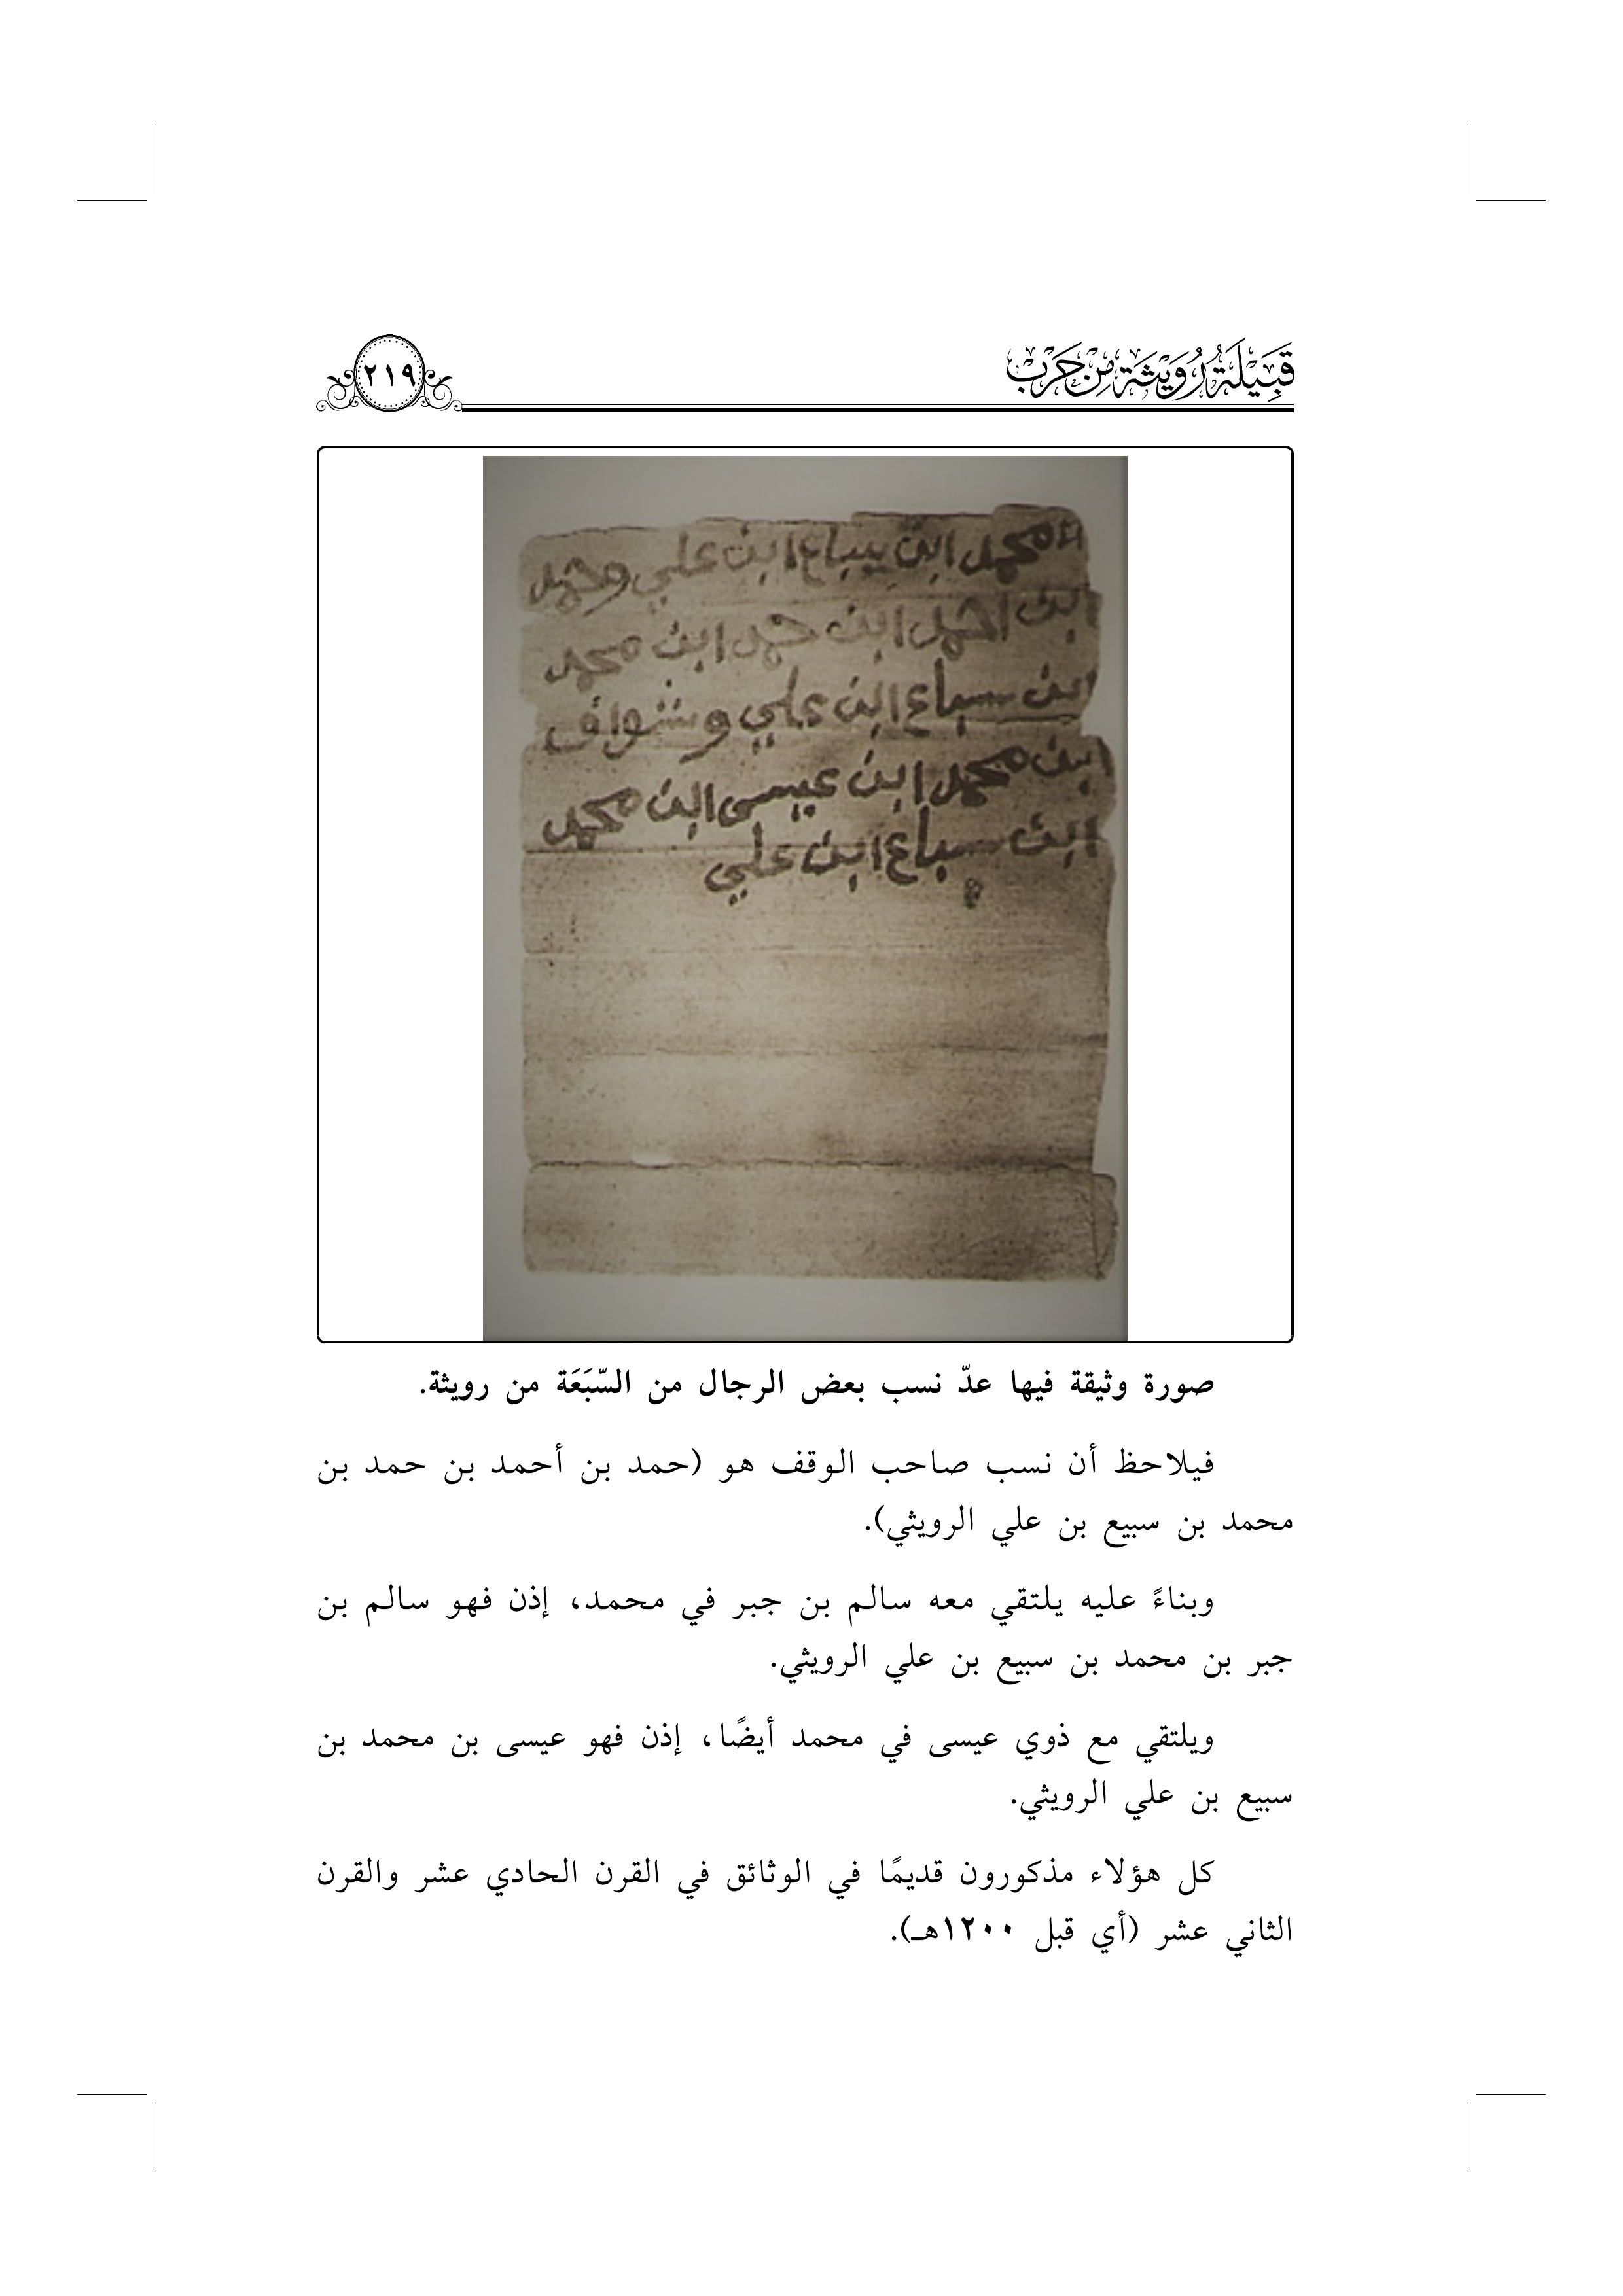 قَبِيْلَةُ رُوَيْثَة مِنْ حَرْبْ
٢١٩
محمد ابن سباع ابن علي وحمد
ابن احمد ابن حمد ابن محمد
ابن سباع ابن علي وشواق
ابن محمد ابن عيسى ابن محمد
ابن سباع ابن علي
صورة وثيقة فيها عدّ نسب بعض الرجال من السّبَعَة من رويثة.
فيلاحظ أن نسب صاحب الوقف هو (حمد بن أحمد بن حمد بن
محمد بن سبيع بن علي الرويثي).
وبناءً عليه يلتقي معه سالم بن جبر في محمد، إذن فهو سالم بن
جبر بن محمد بن سبيع بن علي الرويثي.
ويلتقي مع ذوي عيسى في محمد أيضًا، إذن فهو عيسى بن محمد بن
سبيع بن علي الرويثي.
كل هؤلاء مذكورون قديمًا في الوثائق في القرن الحادي عشر والقرن
الثاني عشر (أي قبل ١٢٠٠هـ).